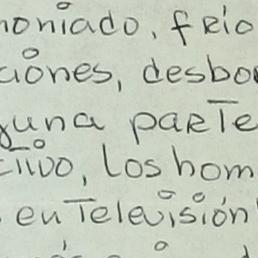 moniado, frio
aiones, desbo
guna parte
ctivo, los hom
en Televisión